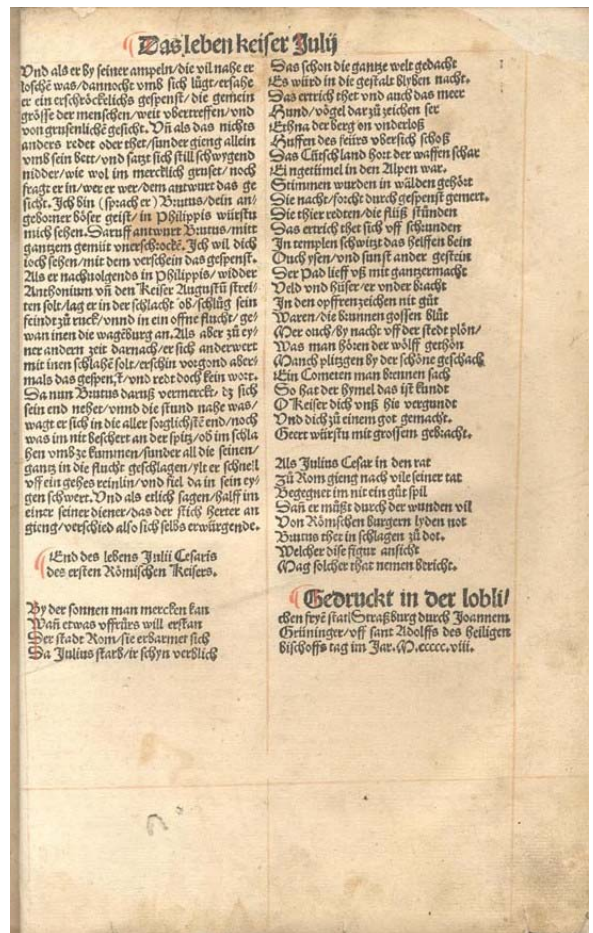 Das leben keiser Julij
Vnd als er by seiner ampeln/die vil nahe er
loschē was/dannocht vmb sich lůgt/ersahe
er ein erschröckelichs gespenst/die gemein
grösse der menschen/weit vbertreffen/vnd
von grusenlichē gesicht. Vn̄ als das nichts
anders redet oder thet/sunder gieng allein
vmb sein bett/vnd satzt sich still schwygend
nidder/wie wol im mercklich gruset/noch
fragt er in/wer er wer/dem antwurt das ge
sicht. Ich bin (sprach er) Brutus/dein an-
geborner böser geist/in Philippis würstu
mich sehen. Daruff antwurt Brutus/mitt
gantzem gemüt vnerschrockē. Ich wil dich
ioch sehen/mit dem verschein das gespenst.
Als er nachuolgends in Philippis/widder
Anthonium vn̄ den Keiser Augustū strei-
ten solt/lag er in der schlacht ob/schlůg sein
feindt zů ruck/vnnd in ein offne flucht/ge-
wan inen die wagēburg an. Als aber zů ey-
ner andern zeit darnach/er sich anderwert
mit inen schlahē solt/erschin vorgond aber-
mals das gespenst/vnd redt doch kein wort.
Da nun Brutus daruß vermerckt/dz sich
sein end neher/vnnd die stund nahe was/
wagt er sich in die aller sorglichstē end/noch
was im nit beschert an der spitz/ob im schla
hen vmbzekummen/sunder all die seinen/
gantz in die flucht geschlagen/ylt er schnell
vff ein gehes reinlin/vnd fiel da in sein ey-
gen schwert. Vnd als etlich sagen/halff im
einer seiner diener/das der stich herter an
gieng/verschied also sich selbs erwürgende.
End des lebens Julii Cesaris
des ersten Römischen Keisers.
By der sonnen man mercken kan
Wañ etwas vffrůrs will erstan
Der stadt Rom/sie erbarmet sich
Da Julius starb/ir schyn verblich
Das schon die gantze welt gedacht
Es würd in die gestalt blyben nacht.
Das ertrich thet vnd auch das meer
Hund/vögel dar zů zeichen ser
Ethna der berg on vnderloß
Huffen des feürs vbersich schoß
Das Tütschland hort der waffen schar
Ein getümel in den Alpen war.
Stimmen wurden in wälden gehört
Die nacht/forcht durch gespenst gemert.
Die thier redten/die flüß stünden
Das ertrich thet sich vff schrunden
In templen schwitzt das helffen bein
Ouch ysen/vnd sunst ander gestein
Der Pad lieff vß mit gantzer macht
Veld vnd hüser/er vnder bracht
In den opffrenzeichen nit gůt
Waren/die brunnen gossen blůt
Mer ouch/by nacht vff der stedt plön/
Was man hören der wölff gethön
Manch plitzgen by der schöne geschach
Ein Cometen man brennen sach
So hat der hymel das ist kundt
O Keiser dich vnß hie vergundt
Vnd dich zů einem got gemacht.
Geert würstu mit grossem gebracht.
Als Julius Cesar in den rat
Zů Rom gieng nach vile seiner tat
Begegnet im nit ein gůt spil
Dañ er můßt durch der wunden vil
Von Römschen burgern lyden not
Brutus thet in schlagen zů dot.
Welcher dise figur ansicht
Mag solcher that nemen bricht.
Gedruckt in der lobli/
chen fryē statt Straßburg durch Joannem
Grüninger/vff sant Adolffs des heiligen
bischoffs tag im Jar. M.ccccc.viii.